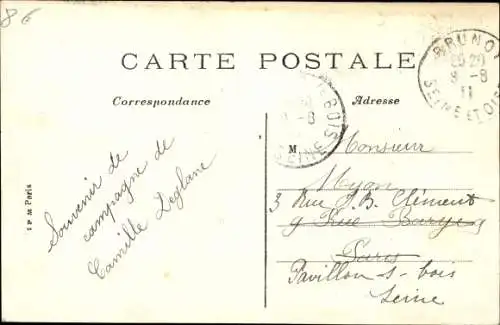 8€
CARTE POSTALE
Correspondance
Adresse
BRUNOY
20
8-8
11
SEINE ET OISE
BOIS
-8
SEINE
Souvenir de
campagne de
Camille Deglane
M. Monsieur
Myon
3 Rue J. B. Clément
9 Rue Barye
Paris
Pavillon-s-bois
Seine
I P M Paris